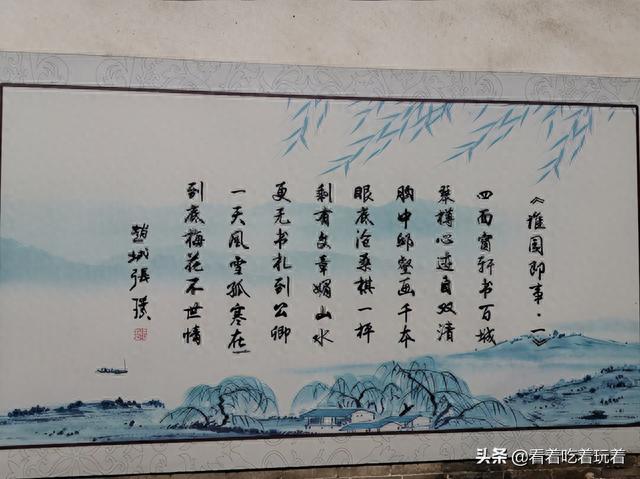 《谁园即事·一》
四面窗轩书百城
琴樽心迹自双清
胸中邱壑画千本
眼底沧桑棋一枰
剩有文章媚山水
更无书札到公卿
一天风雪孤寒在
到底梅花不世情
趙城張璞
头条 @看着吃着玩着